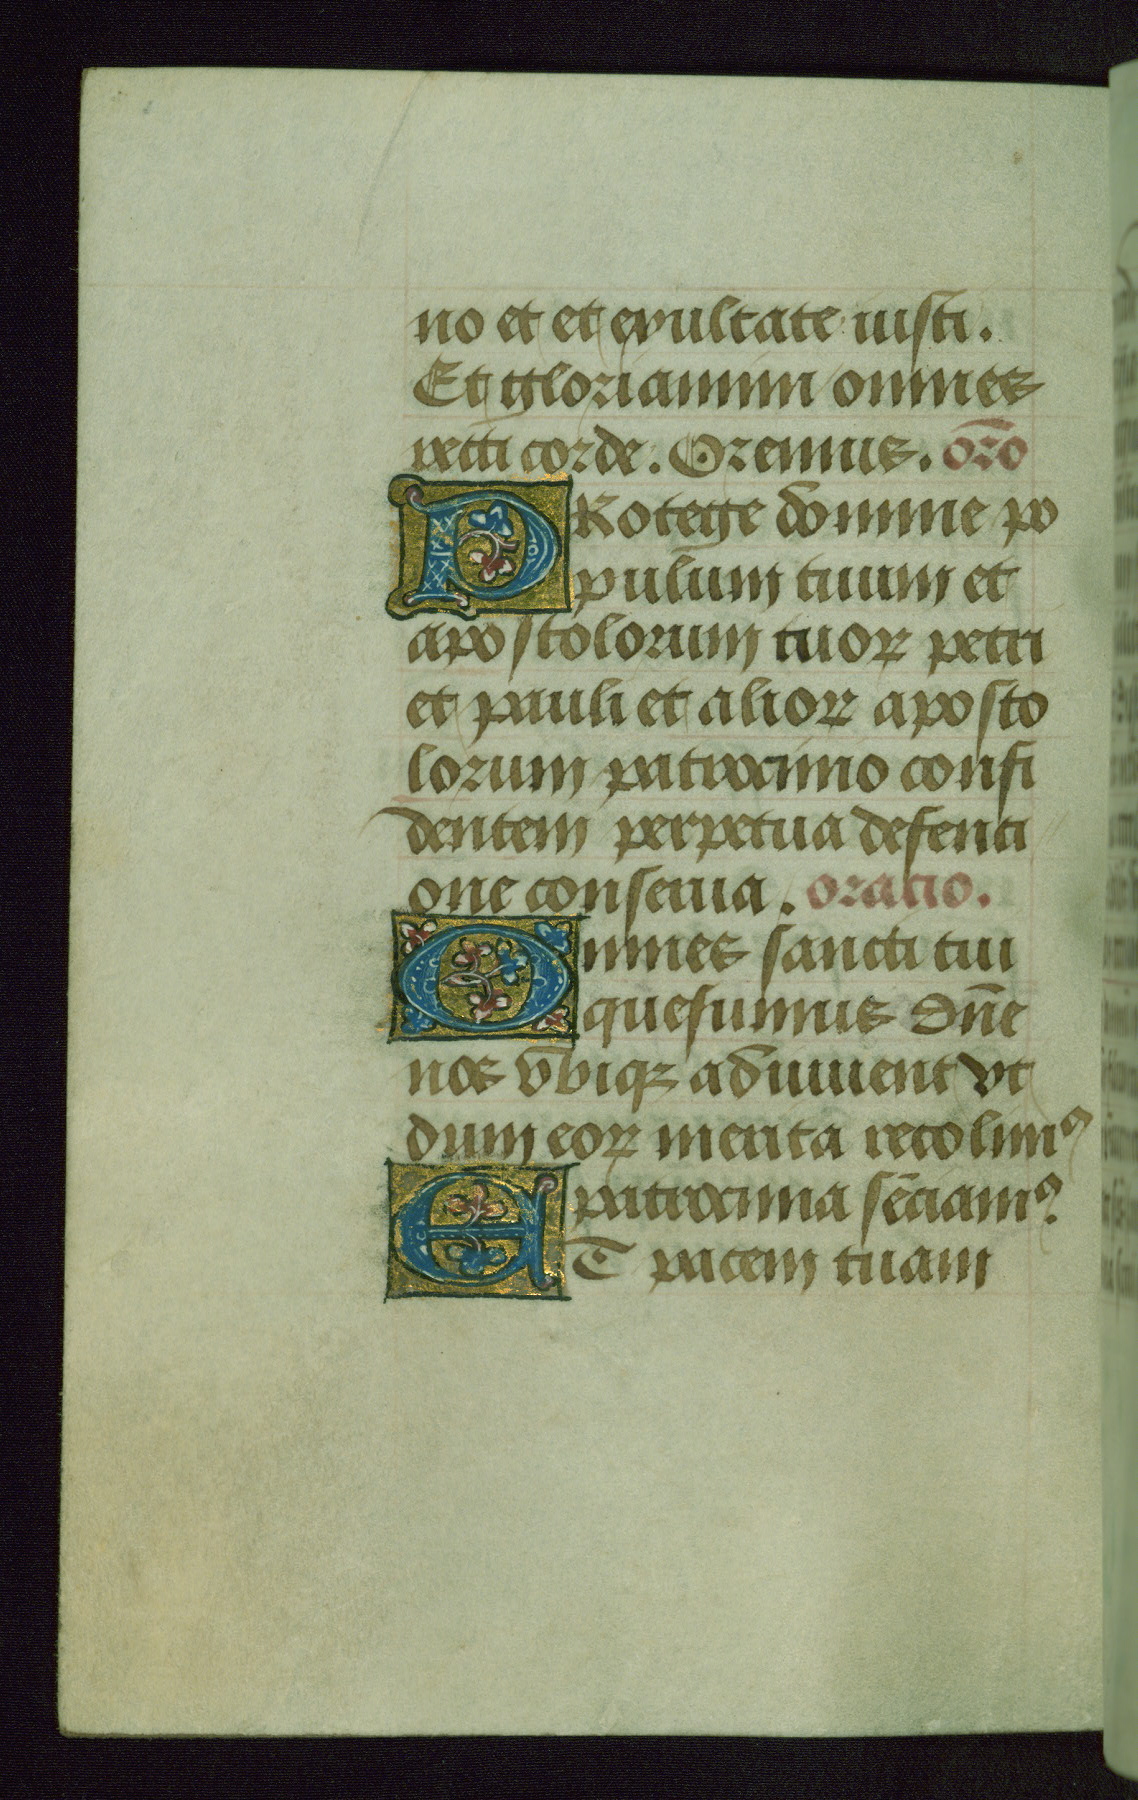 no et et exultate iusti.
Et gloriamini omnes
recti corde. Oremus. or̄o
PRotege domine po
pulum tuum et
apostolorum tuoꝝ petri
et pauli et alioꝝ aposto
lorum patrocinio confi
dentem perpetua defenci
one conserua. oracio.
Omnes sancti tui
quesumus dn̄e
nos vbiqꝫ adiuuent vt
dum eoꝝ merita recolimꝰ
patrocinia sēciamꝰ
ET pacem tuam